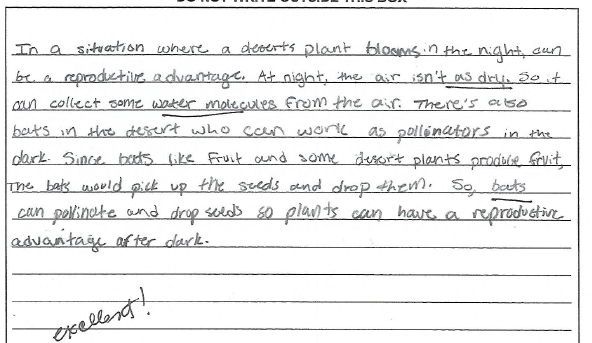 DO NOT WRITE OUTSIDE THIS BOX
In a situation where a deserts plant blooms in the night, can
be a reproductive advantage. At night, the air isn't as dry. So it
can collect some water molecules from the air. There's also
bats in the desert who can work as pollinators in the
dark. Since bats like fruit and some desert plants produce fruit,
The bats would pick up the seeds and drop them. So, bats
can pollinate and drop seeds so plants can have a reproductive
advantage after dark.
excellent!